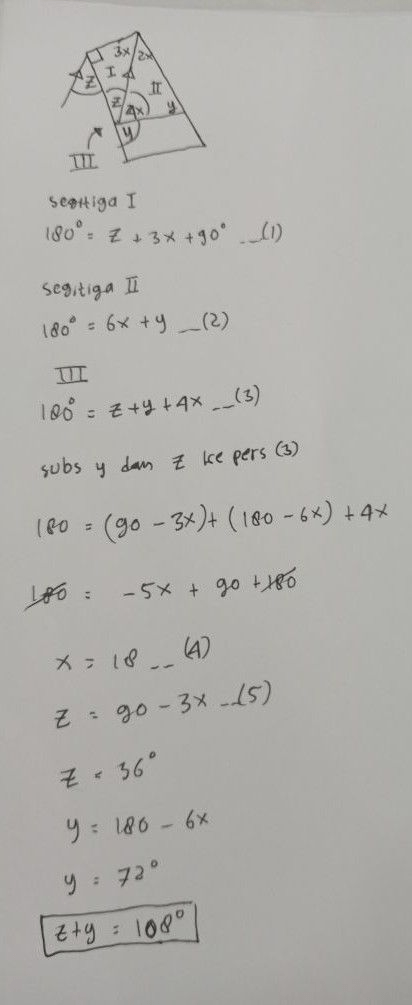 3x 2x
z I II
z 4x y
y
III
segitiga I
180° = z + 3x + 90° __(1)
segitiga II
180° = 6x + y __(2)
III
180° = z + y + 4x __(3)
subs y dan z ke pers (3)
180 = (90 - 3x) + (180 - 6x) + 4x
180 = -5x + 90 + 180
x = 18 __ (4)
z = 90 - 3x __(5)
z = 36°
y = 180 - 6x
y = 72°
z + y = 108°